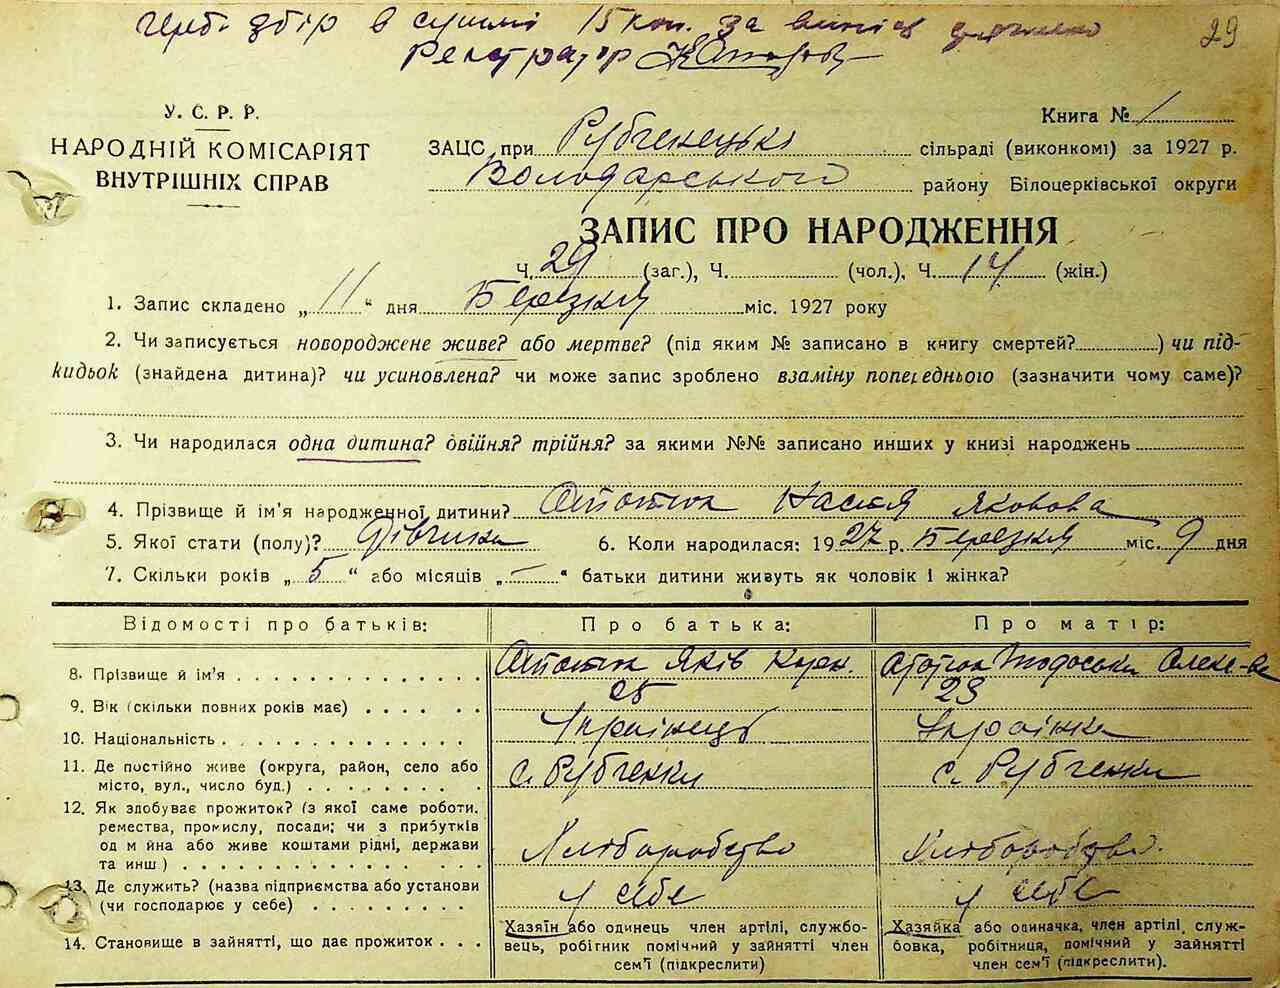 Герб. збір в сумі 15 коп. за випис
Реєстратор
29
У. С. Р. Р.
НАРОДНІЙ КОМІСАРІЯТ
ВНУТРІШНІХ СПРАВ
Книга № 1
ЗАЦС при Рубченецькі сільраді (виконкомі) за 1927 р.
Володарського району Білоцерківської округи
ЗАПИС ПРО НАРОДЖЕННЯ
Ч. 29 (заг.), Ч. (чол.), Ч. 14 (жін.)
1. Запис складено „ 11 “ дня Березня міс. 1927 року
2. Чи записується новороджене живе? або мертве? (під яким № записано в книгу смертей? ) чи під-
кидьок (знайдена дитина)? чи усиновлена? чи може запис зроблено взаміну попереднього (зазначити чому саме)?
3. Чи народилася одна дитина? двійня? трійня? за якими №№ записано инших у книзі народжень
4. Прізвище й ім’я народженної дитини? Настя Яковова
5. Якої стати (полу)? Дівчина 6. Коли народилася: 1927 р. Березня міс. 9 дня
7. Скільки років „ 5 “ або місяців „ — “ батьки дитини живуть як чоловік і жінка?
Відомості про батьків: Про батька: Про матір:
8. Прізвище й ім’я Яків Корн. Тодоська
9. Вік (скільки повних років має) 25 23
10. Національність Українець Українка
11. Де постійно живе (округа, район, село або
місто, вул., число буд.) с. Рубченки с. Рубченки
12. Як здобуває прожиток? (з якої саме роботи.
ремества, промислу, посади; чи з прибутків
од м йна або живе коштами рідні, держави
та инш ) Хліборобство Хліборобство.
13. Де служить? (назва підприємства або установи
(чи господарює у себе) у себе у себе
14. Становище в зайнятті, що дає прожиток
Хазяїн або одинець член артілі, службо-
вець, робігник помічний у зайнятті член
сем’ї (підкреслити)
Хазяйка або одиначка, член артілі, служ-
бовка, робітниця, помічний у зайнятті
член сем’ї (підкреслити).